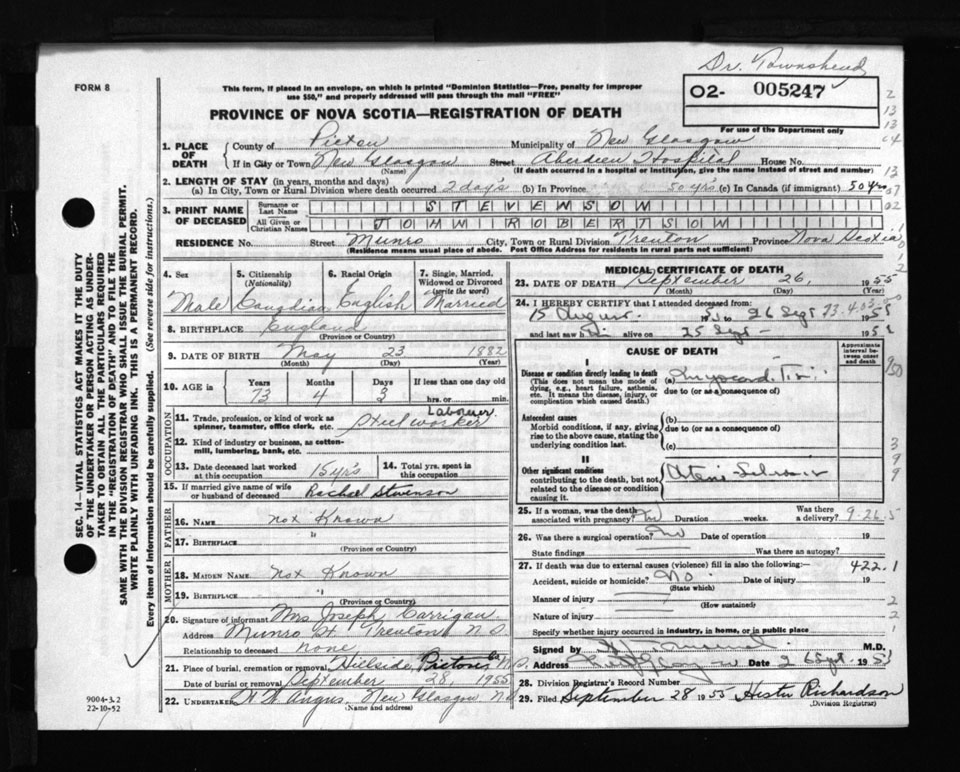 Dr. Townshend
FORM 8
This form, if placed in an envelope, on which is printed "Dominion Statistics—Free, penalty for improper
use $50," and properly addressed will pass through the mail "FREE"
O2- 005247
For use of the Department only
PROVINCE OF NOVA SCOTIA—REGISTRATION OF DEATH
1. PLACE OF DEATH
County of Pictou Municipality of New Glasgow
If in City or Town New Glasgow Street Aberdeen Hospital House No.
(Name) (If death occurred in a hospital or institution, give the name instead of street and number)
2. LENGTH OF STAY (in years, months and days)
(a) In City, Town or Rural Division where death occurred 2 day's (b) In Province 50 yrs (c) In Canada (if immigrant) 50 yrs
3. PRINT NAME OF DECEASED
Surname or Last Name STEVENSON
All Given or Christian Names JOHN ROBERTSON
RESIDENCE No. Street Munro City, Town or Rural Division Trenton Province Nova Scotia
(Residence means usual place of abode. Post Office Address for residents in rural parts not sufficient)
4. Sex
Male
5. Citizenship
(Nationality)
Canadian
6. Racial Origin
English
7. Single, Married, Widowed or Divorced
(write the word)
Married
8. BIRTHPLACE England
(Province or Country)
9. DATE OF BIRTH May 23 1882
(Month) (Day) (Year)
10. AGE in
Years Months Days If less than one day old
73 4 3 hrs. or min.
OCCUPATION
11. Trade, profession, or kind of work as
spinner, teamster, office clerk, etc. Steel worker
Labourer
12. Kind of industry or business, as cotton-
mill, lumbering, bank, etc.
13. Date deceased last worked
at this occupation 15 yr's
14. Total yrs. spent in
this occupation
15. If married give name of wife
or husband of deceased Rachael Stevenson
FATHER
16. NAME not Known
17. BIRTHPLACE "
(Province or Country)
MOTHER
18. MAIDEN NAME not Known
19. BIRTHPLACE "
(Province or Country)
20. Signature of informant Mrs Joseph Carrigan
Address Munro St. Trenton N.S
Relationship to deceased none
21. Place of burial, cremation or removal Hillside, Pictou Co N.S.
Date of burial or removal September 28, 1955
22. UNDERTAKER H W Angus, New Glasgow N.S
(Name and address)
MEDICAL CERTIFICATE OF DEATH
23. DATE OF DEATH September 26, 1955
(Month) (Day) (Year)
24. I HEREBY CERTIFY that I attended deceased from:
15 August to 26 Sept
and last saw h alive on 25 Sept 195
CAUSE OF DEATH
Approximate interval between onset and death
I
Disease or condition directly leading to death
(This does not mean the mode of dying, e.g., heart failure, asthenia, etc. It means the disease, injury, or complication which caused death.)
(a)
due to (or as a consequence of)
Antecedent causes
Morbid conditions, if any, giving rise to the above cause, stating the underlying condition last.
(b)
due to (or as a consequence of)
(c)
II
Other significant conditions
contributing to the death, but not related to the disease or condition causing it.
25. If a woman, was the death
associated with pregnancy? Duration weeks. Was there a delivery?
9-26-5
26. Was there a surgical operation? No Date of operation 19
State findings Was there an autopsy?
27. If death was due to external causes (violence) fill in also the following:
422.1
Accident, suicide or homicide? No. Date of injury 19
(State which)
Manner of injury
(How sustained)
Nature of injury
Specify whether injury occurred in industry, in home, or in public place
Signed by M.D.
Address New Glasgow Date 26 Sept. 195
28. Division Registrar's Record Number
29. Filed September 28 1955 Hester Richardson
(Division Registrar)
SEC. 14—VITAL STATISTICS ACT MAKES IT THE DUTY
OF THE UNDERTAKER OR PERSON ACTING AS UNDER-
TAKER TO OBTAIN ALL THE PARTICULARS REQUIRED
IN THE "REGISTRATION OF DEATH" AND TO FILE THE
SAME WITH THE DIVISION REGISTRAR WHO SHALL ISSUE THE BURIAL PERMIT.
WRITE PLAINLY WITH UNFADING INK. THIS IS A PERMANENT RECORD.
Every item of information should be carefully supplied. (See reverse side for instructions.)
9004-3.2
22-10-52